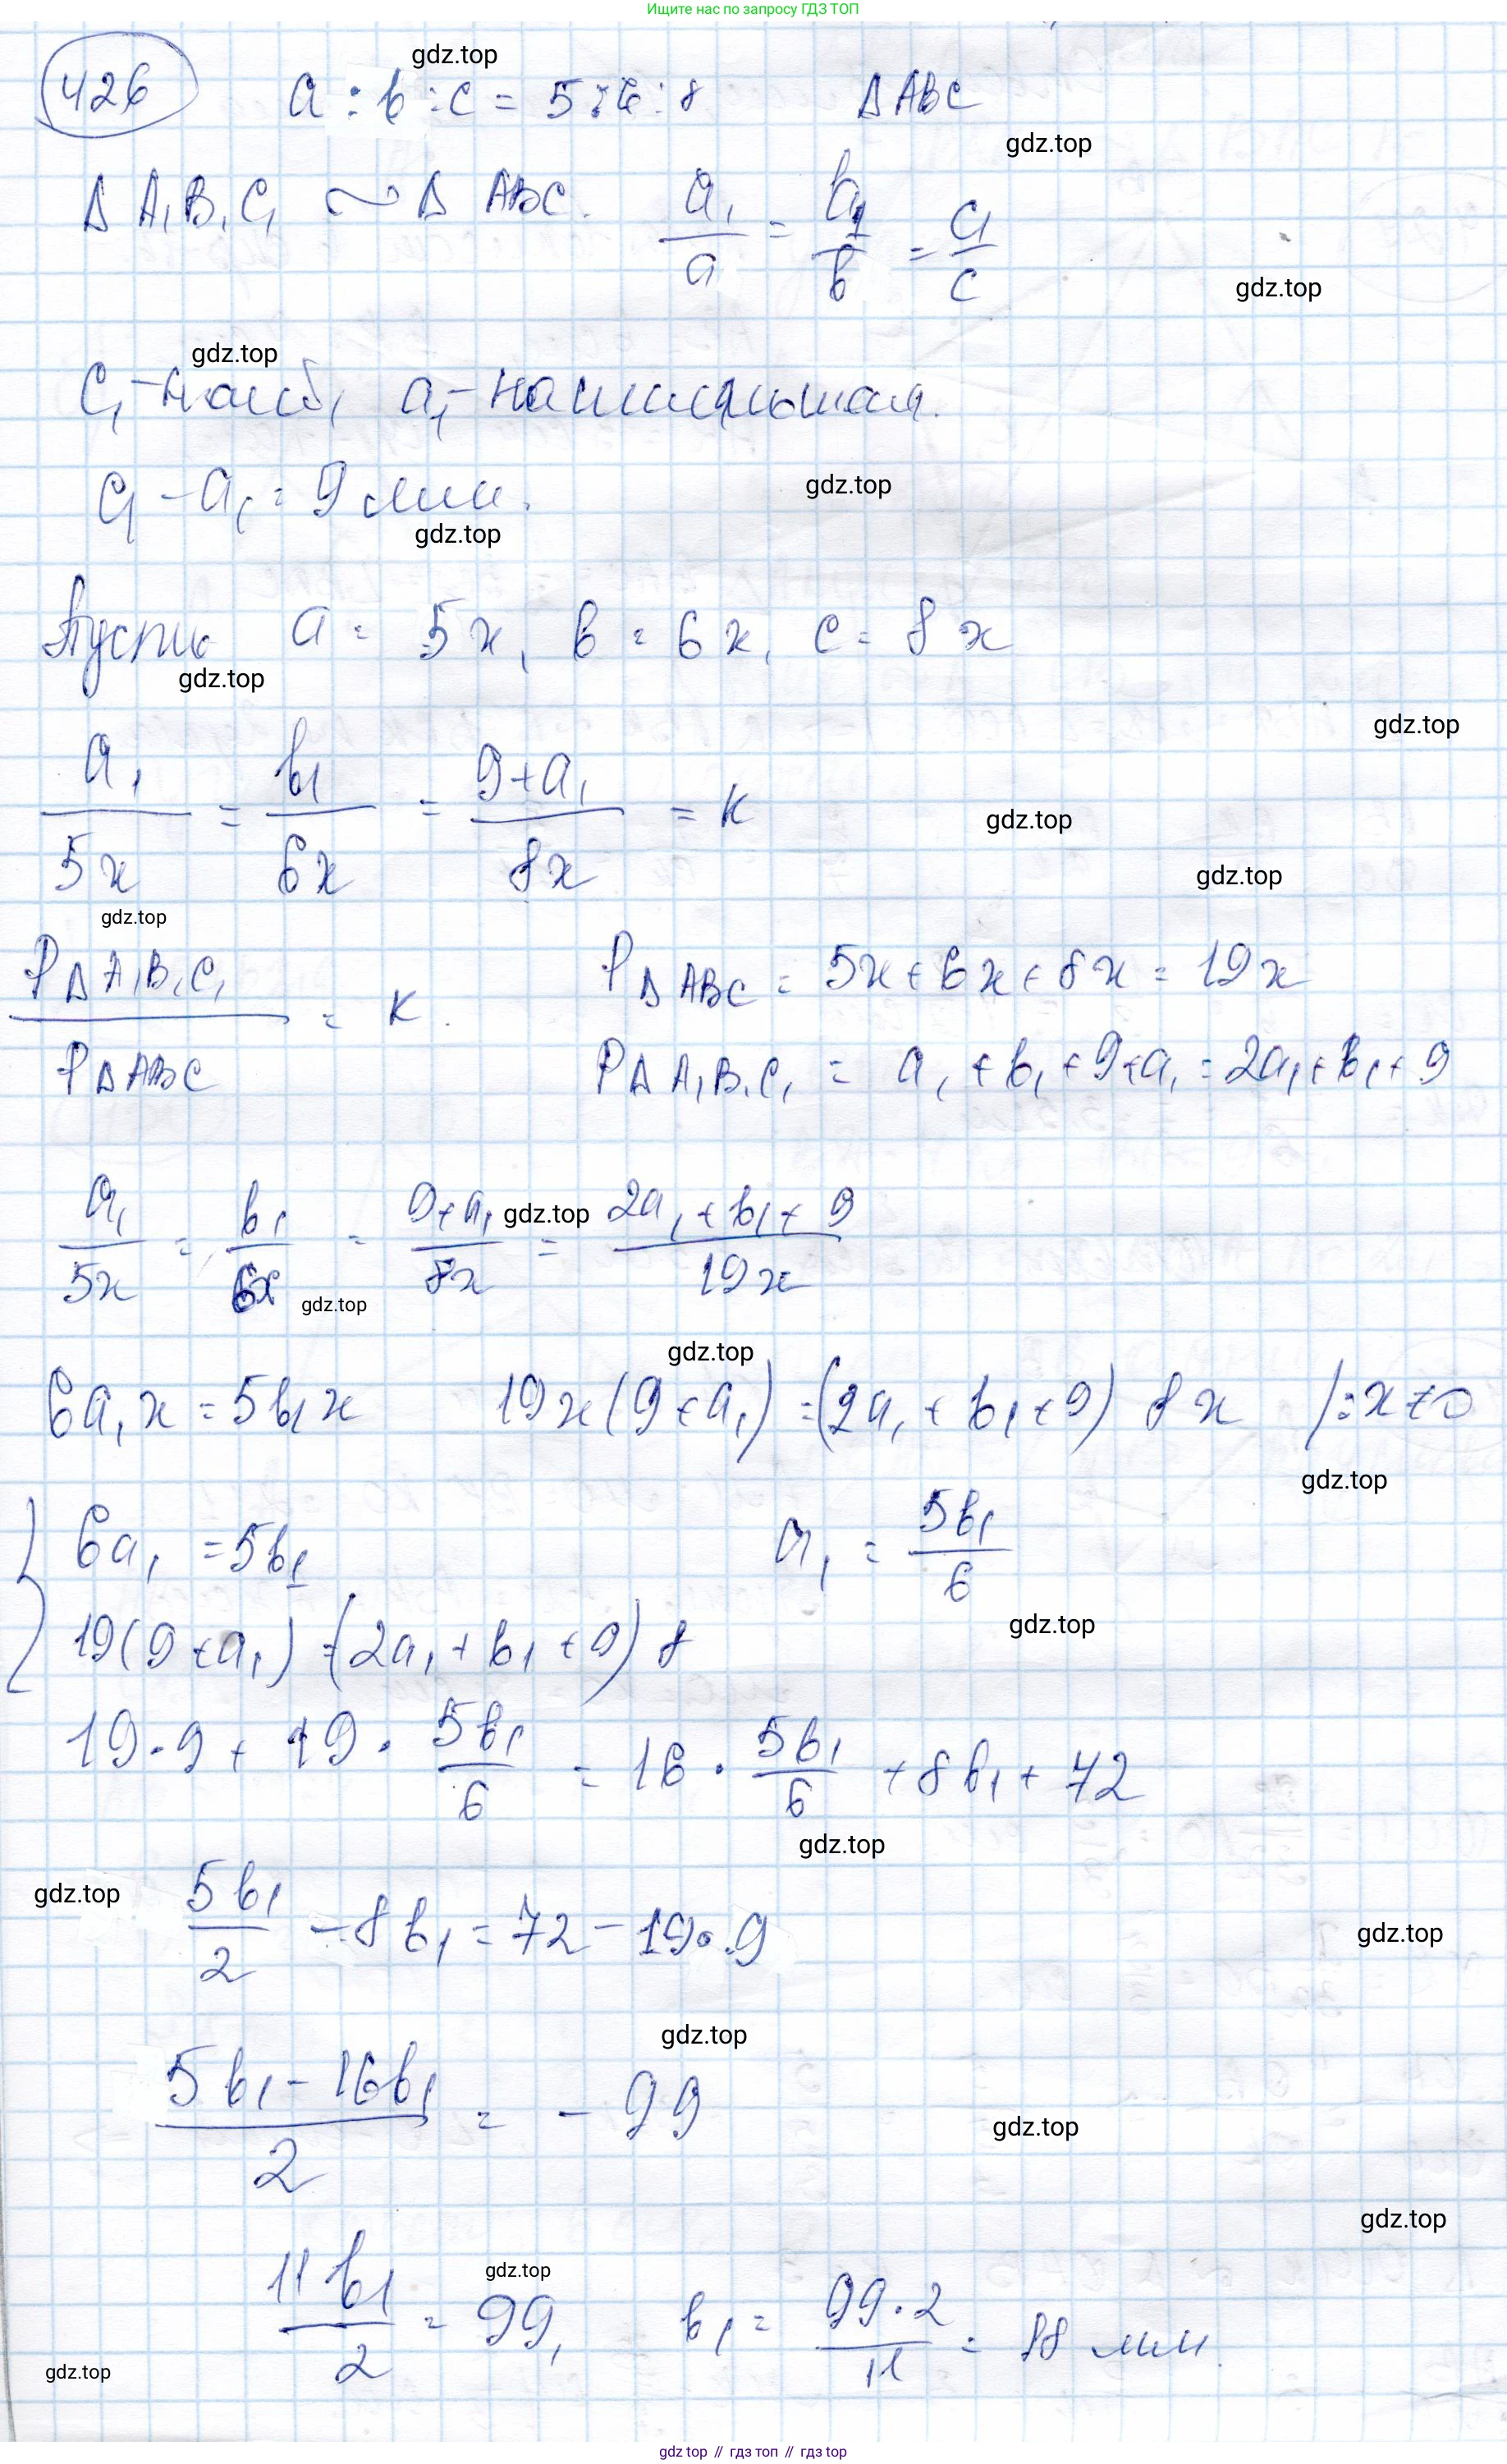 Ищите нас по запросу ГДЗ ТОП
gdz.top
426 a : b : c = 5 : 6 : 8 Δ ABC
gdz.top
Δ A₁B₁C₁ ∼ Δ ABC. a₁/a = b₁/b = c₁/c
gdz.top
gdz.top
c₁ – наиб, a₁ – наименьшая.
c₁ – a₁ = 9 мм.
gdz.top
gdz.top
Пусть a = 5x, b = 6x, c = 8x
gdz.top
gdz.top
a₁/5x = b₁/6x = 9+a₁/8x = k
gdz.top
gdz.top
gdz.top
P Δ A₁B₁C₁ / P Δ ABC = k. P Δ ABC = 5x + 6x + 8x = 19x
P Δ A₁B₁C₁ = a₁ + b₁ + 9 + a₁ = 2a₁ + b₁ + 9
a₁/5x = b₁/6x = 9+a₁/8x = 2a₁ + b₁ + 9/19x
gdz.top
gdz.top
gdz.top
6a₁x = 5b₁x 19x(9 + a₁) = (2a₁ + b₁ + 9) 8x / : x ≠ 0
gdz.top
6a₁ = 5b₁ a₁ = 5b₁/6
gdz.top
19(9 + a₁) = (2a₁ + b₁ + 9) 8
19 · 9 + 19 · 5b₁/6 = 16 · 5b₁/6 + 8b₁ + 72
gdz.top
gdz.top
5b₁/2 – 8b₁ = 72 – 19 · 9
gdz.top
gdz.top
5b₁ – 16b₁/2 = – 99
gdz.top
gdz.top
gdz.top
11b₁/2 = 99, b₁ = 99 · 2/11 = 18 мм.
gdz.top
gdz top // гдз топ // гдз top